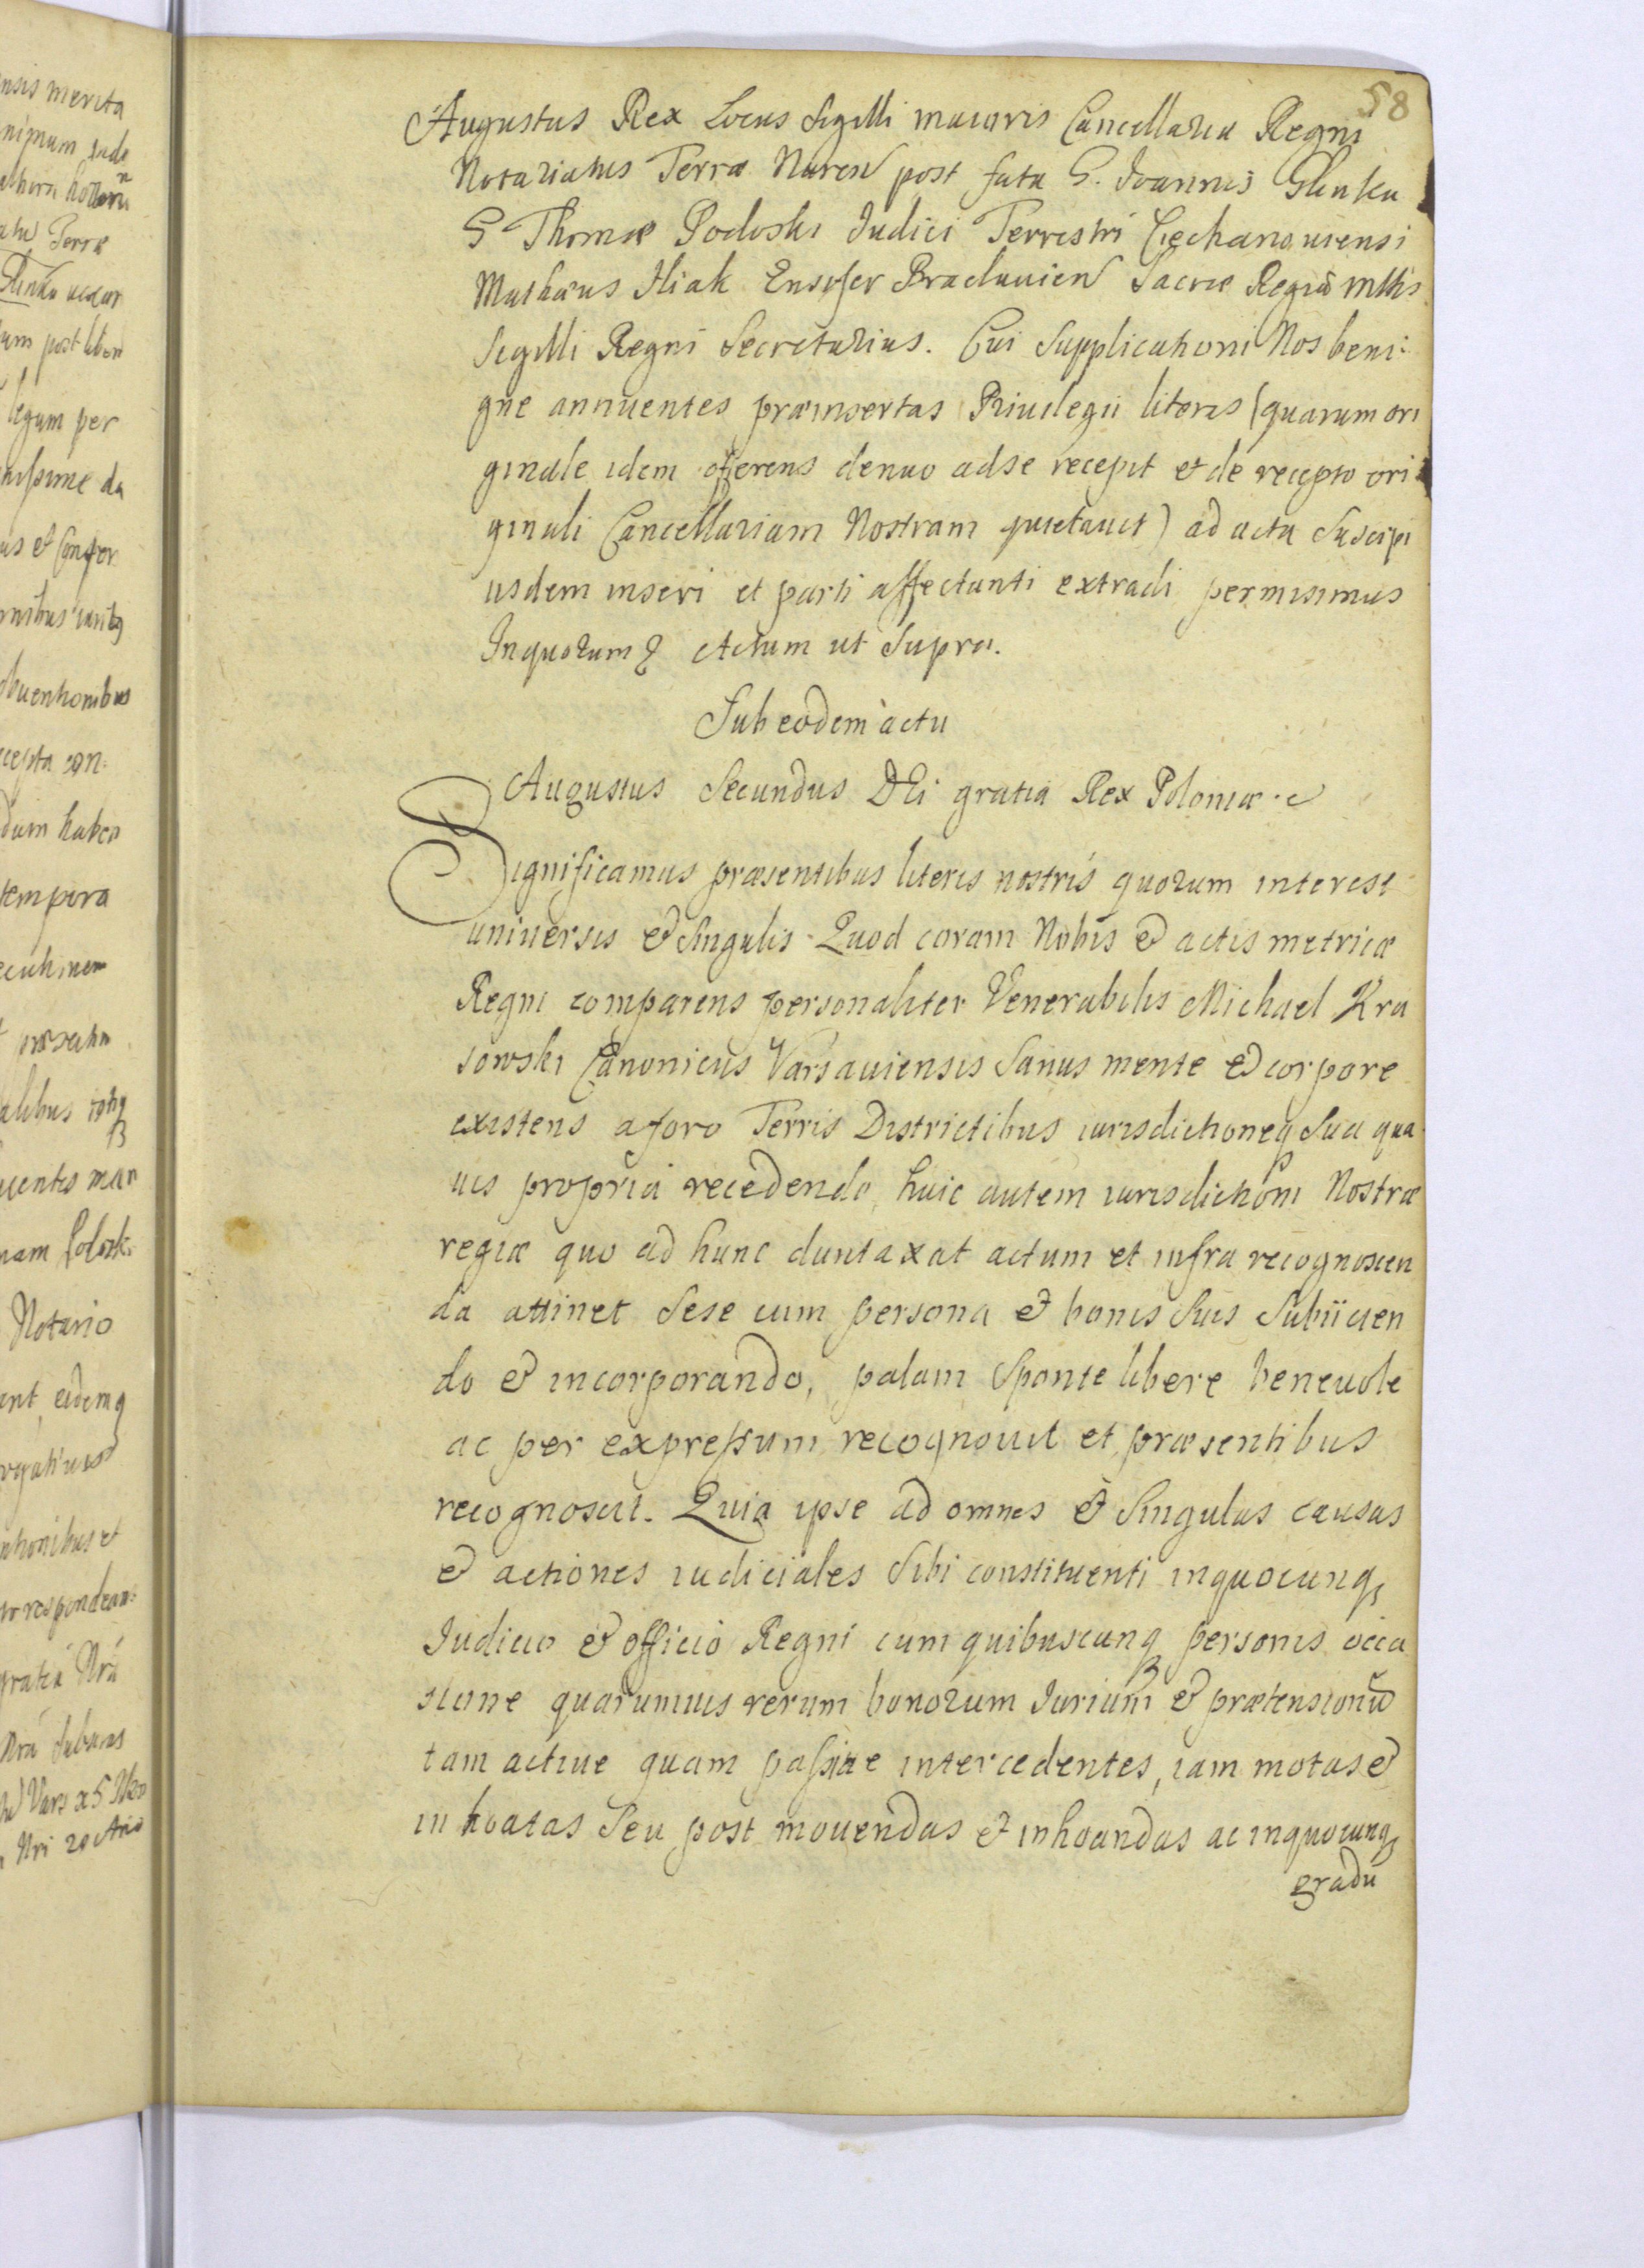 58
Augustus Rex Locus Sigilli maioris Cancellariæ Regni
Notariatus Terræ Nuren post fata G. Joannis Glinka
G Thomæ Podoski Judici Terrestri Ciechanouiensi
Mathæus Iliak Ensifer Braclauien Sacræ Regiæ Mttis
Sigilli Regni Secretarius. Cui Supplicationi Nos beni-
gne annuentes præinsertas Priuilegii literas (quarum ori
ginale idem offerens denuo adse recepit et de recepto ori
ginali Cancellariam Nostram quietauit) ad acta Suscipi
iisdem inseri et parti affectanti extradi permisimus
Inquorum Actum ut Supra.
Sub eodem actu
Augustus Secundus DEi gratia Rex Poloniæ
Significamus præsentibus literis nostris quorum interest
uniuersis et Singulis. Quod coram Nobis et actis metricæ
Regni comparens personaliter Venerabilis Michael Kra
sowski Canonicus Varsauiensis Sanus mente et corpore
existens aforo Terris Districtibus iurisdictioneq Sua qua
uis propria recedendo, huic autem iurisdictioni Nostræ
regiæ quo ad hunc duntaxat actum et infra recognoscen
da attinet Sese cum persona et bonis Suis Subiicien
do et incorporando, palam Sponte libere beneuole
ac per expressum recognouit et præsentibus
recognoscit. Quia ipse ad omnes et Singulas causas
et actiones iudiciales Sibi constituenti inquocunq
Iudicio et officio Regni cum quibuscunq personis occa
sione quarumuis rerum bonorum Iurium et prætensionū
tam actiue quam passiue intercedentes, iam motas et
inhoatas Seu post mouendas et inhoandas ac inquocunq
gradu